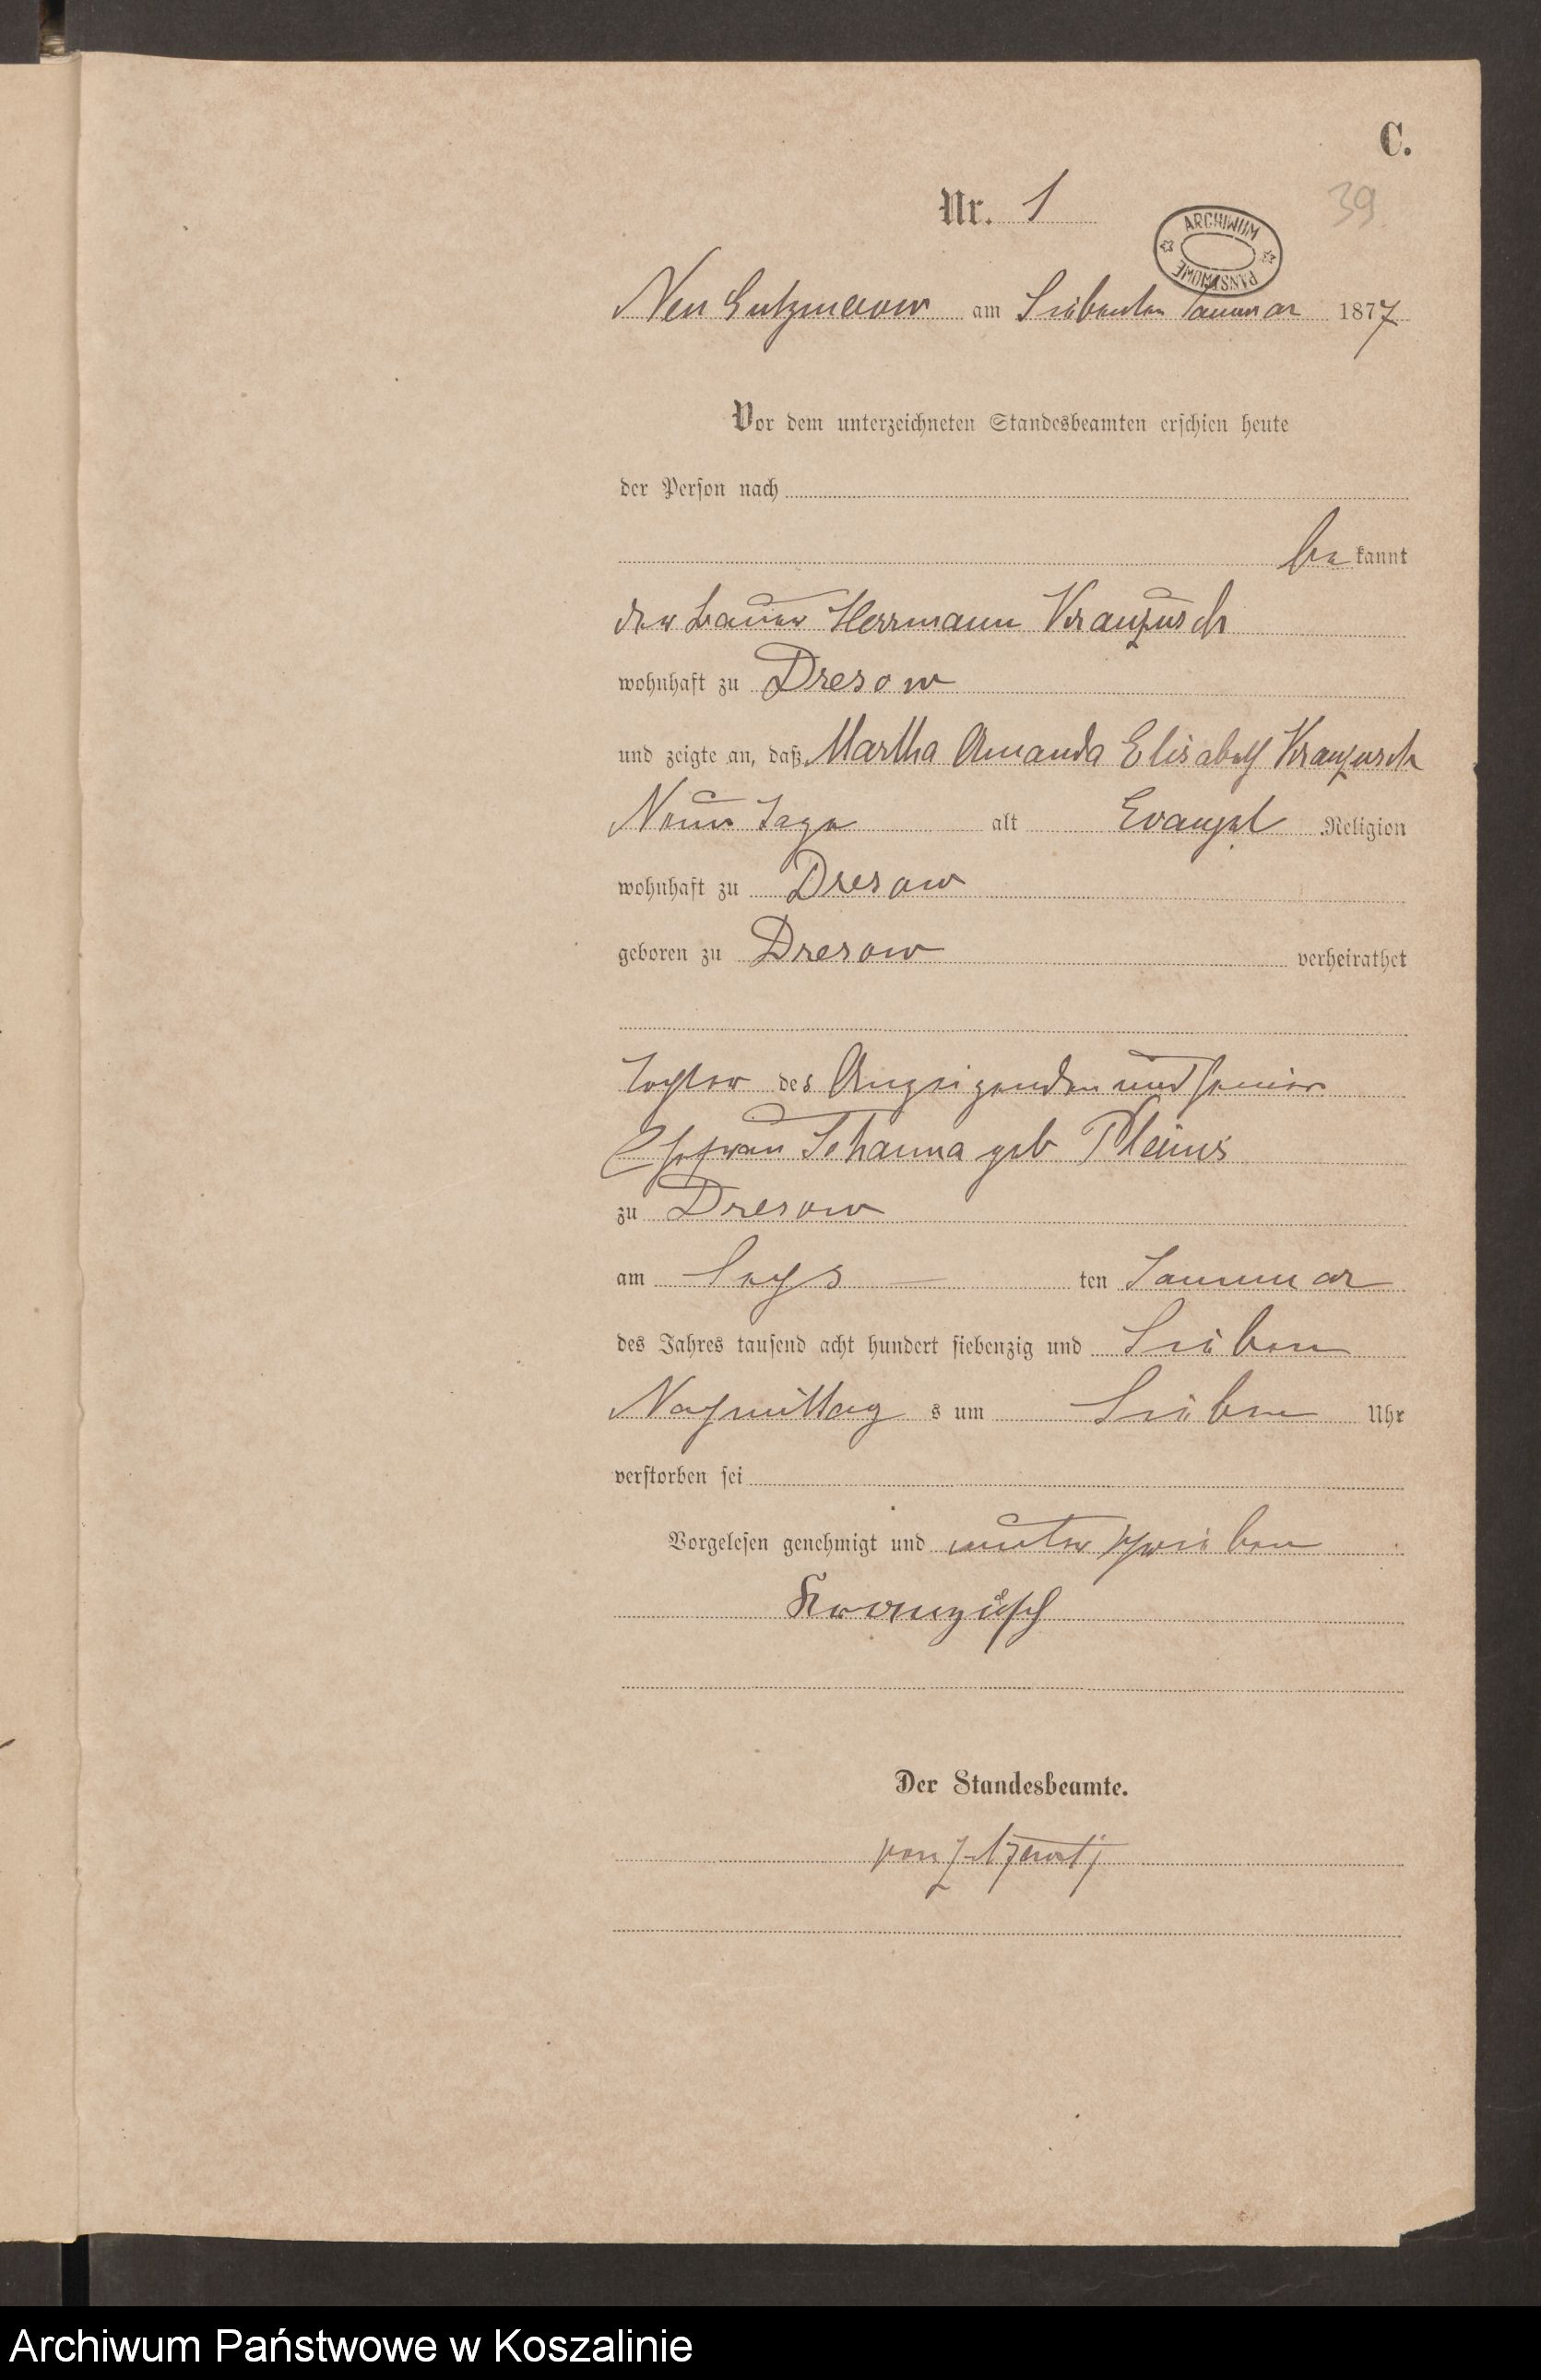 C.
Nr. 1
39
ARCHIWUM PAŃSTWOWE
Neu Gutzmerow am Siebenten Januar 1877
Vor dem unterzeichneten Standesbeamten erschien heute
der Person nach
be kannt
der Bauer Herrmann Kranzusch
wohnhaft zu Dresow
und zeigte an, daß Martha Amanda Elisabeth Kranzusch
Neun Tage alt Evangel Religion
wohnhaft zu Dresow
geboren zu Dresow verheirathet
Tochter des Anzeigenden und seiner
Ehefrau Johanna geb
zu Dresow
am Sechs ten Januar
des Jahres tausend acht hundert siebenzig und Sieben
Nachmittag s um Sieben Uhr
verstorben sei
Vorgelesen genehmigt und unterschrieben
Kranzusch
Der Standesbeamte.
von
Archiwum Państwowe w Koszalinie